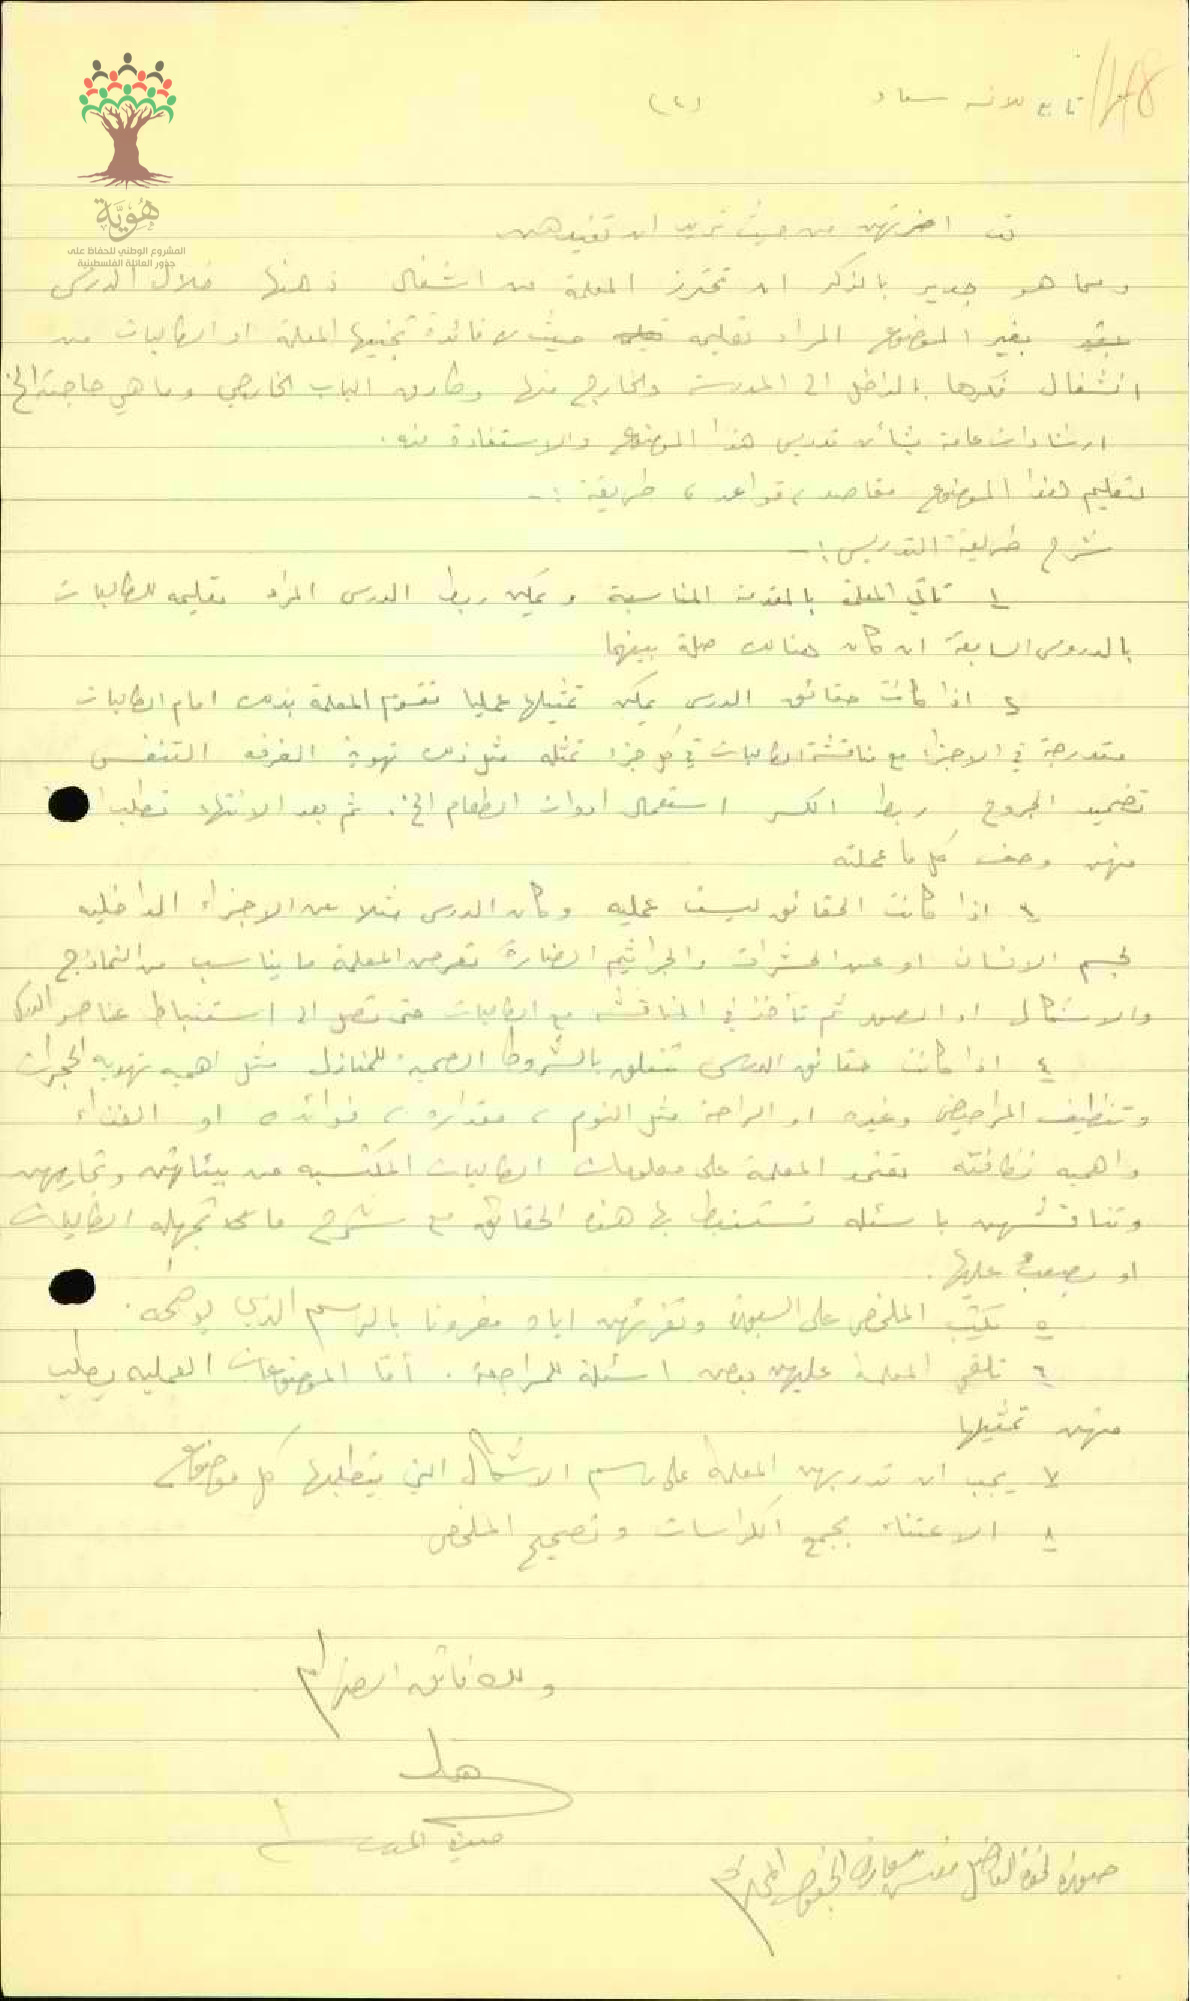 تابع للانسه سعاد (٢)
هُوِيَّة
المشروع الوطني للحفاظ على
جذور العائلة الفلسطينية
من حيث تريد ان تفيدهن
ومما هو جدير بالذكر ان تحترز المعلمة من اشغال ذهنها خلال الدرس
بغير الموضوع المراد تعليمه حيث لا فائدة تجنيها المعلمة او الطالبات من
انشغال فكرها بالداخل الى المدرسة والخارج منها وطارق الباب الخارجي وما هي حاجته الخ
ارشادات عامة بشأن تدريس هذا الموضوع والاستفادة منه.
لتعليم هذا الموضوع مقاصد، قواعد، طريقة :-
شرح طريقة التدريس :-
١ تأتي المعلمة بالمقدمة المناسبة ويمكن ربط الدرس المراد تعليمه للطالبات
بالدروس السابقة ان كان هنالك صلة بينهما
٢ اذا كانت حقائق الدرس يمكن تمثيلها عمليا تقوم المعلمة بذلك امام الطالبات
متدرجة في الاجزاء مع مناقشة الطالبات في كل جزء تمثله مثل ذلك تهوية الغرفه التنفس
تضميد الجروح ربط الكسر استعمال ادوات الطعام الخ. ثم بعد الانتهاء تطلب
منهن وصف كل ما عملته
٣ اذا كانت الحقائق ليست عمليه وكان الدرس مثلا عن الاجزاء الداخليه
لجسم الانسان او عن الحشرات والجراثيم الضارة تعرض المعلمة ما يناسب من النماذج
والاشكال او الصور ثم تأخذ في المناقشه مع الطالبات حتى تصل الى استنباط عناصر الدرس
٤ اذا كانت حقائق الدرس تتعلق بالشروط الصحية للمنازل مثل اهميه تهويه الحجرات
وتنظيف المراحيض وغيره او الراحة مثل النوم، مقداره، فوائده او الغذاء
واهميه نظافته تعتمد المعلمة على معلومات الطالبات المكتسبه من بيئاتهن وتجاربهن
وتناقشهن باسئله تستنبط بها هذه الحقائق مع شرح ما تجهله الطالبات
او يصعب عليها.
٥ تكتب الملخص على السبورة وتقرئهن اياه مقرونا بالرسم الذي يوضحه.
٦ تلقي المعلمة عليهن بعض اسئلة للمراجعة. أما الموضوعات العمليه يطلب
منهن تمثيلها
٧ يجب ان تدربهن المعلمة على رسم الاشكال التي يتطلبها كل موضوع
٨ الاعتناء بجمع الكراسات وتصحيح الملخص
ولك فائق احترامي
مديرة المدرسة
صورة لحضرة الفاضل مفتش معارف الجنوب المحترم